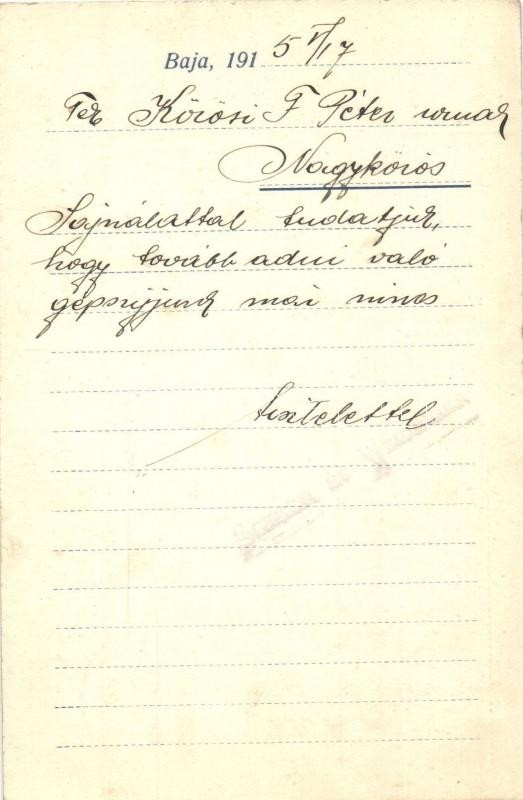 Baja, 1915 V/17
Tek Kőrösi F Péter urnak
Nagykőrös
Sajnálattal tudatjuk,
hogy tovább adni való
gépszijjunk már nincs
tisztelettel